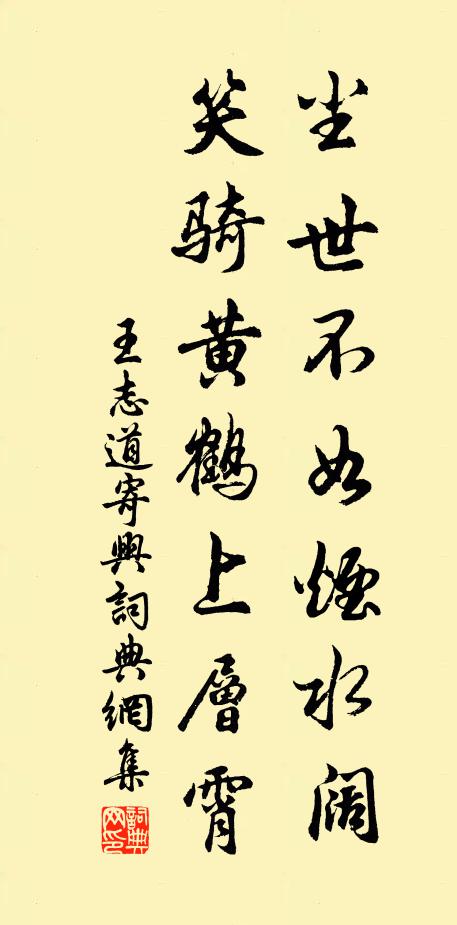 尘世不如煙水阔
笑骑黄鶴上層霄
王志道寄興詞典網集
詞典
网印